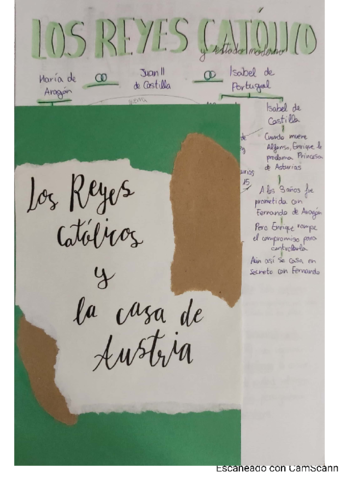 LOS REYES CATÓLICO
y estado moderno
María de Aragón
Juan II de Castilla
Isabel de Portugal
Isabel de
Castilla
Cuando muere
Alfonso, Enrique la
proclama Princesa
de Asturias
A los 3 años fue
prometida con
Fernando de Aragón
Pero Enrique rompe
el compromiso para
Aún así se casa en
secreto con Fernando
Los Reyes
católicos
y
la casa de
Austria
Escaneado con CamScann